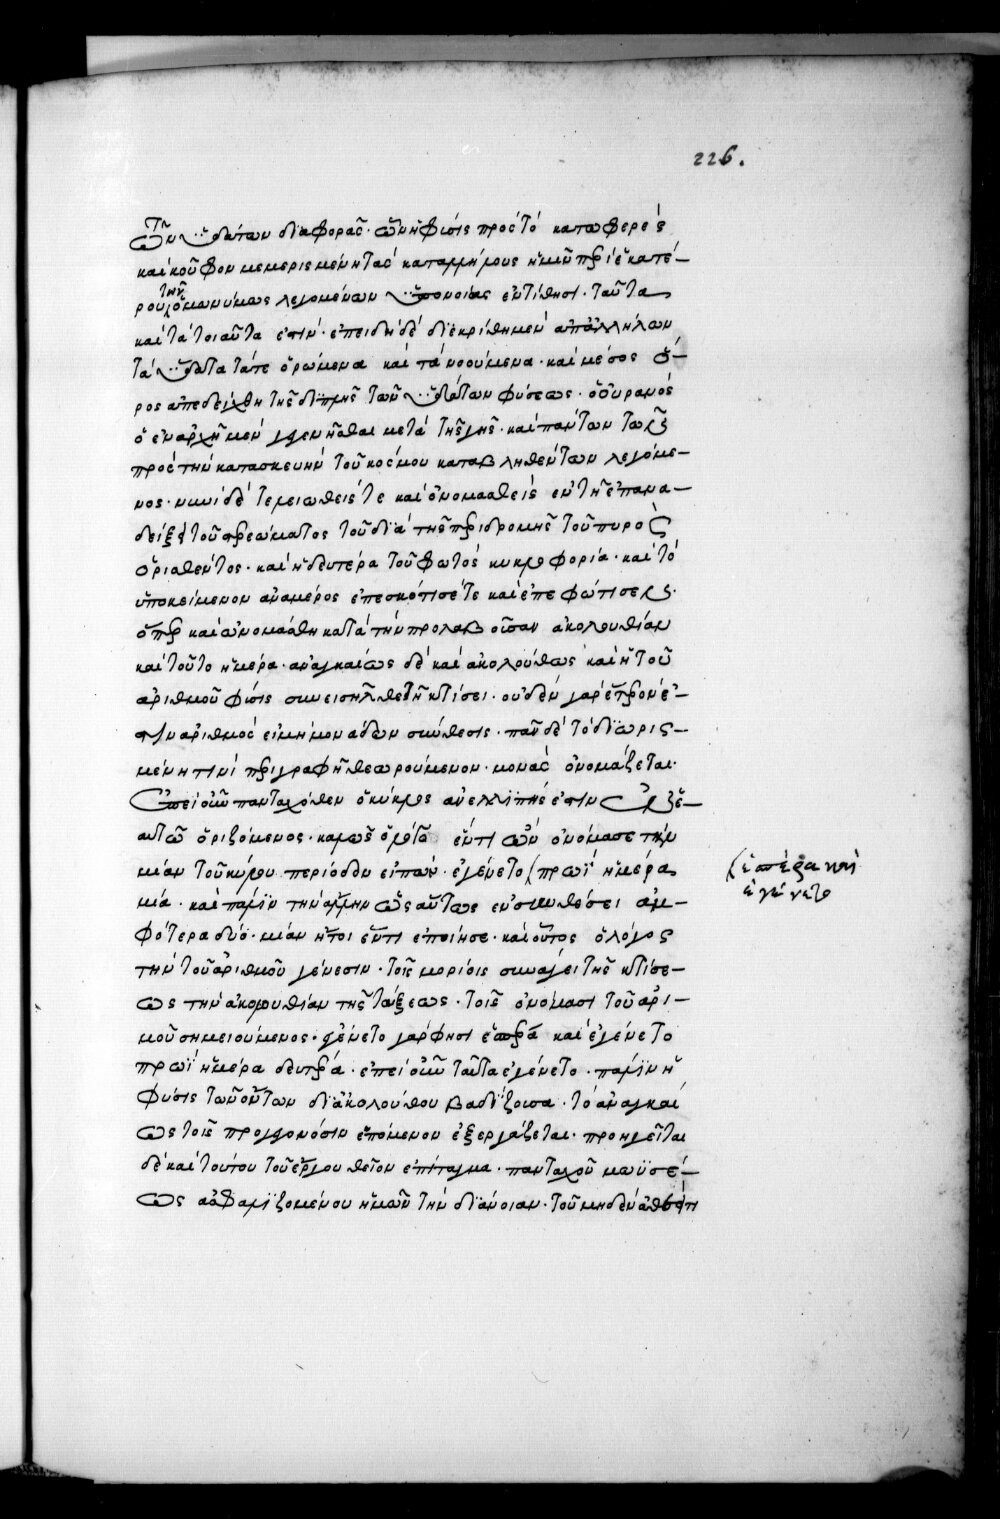 226.
τῶν ὑδάτων διαφοράς· ὧν ἡ φύσις πρὸς τὸ κατωφερές
καὶ κοῦφον μεμερισμένη τὰς κατ' ἀλλήλους ἡμῖν περὶ ἑκατέ-
ρου τῶν ὁμωνύμως λεγομένων ὑπονοίας ἐντίθησι· ταῦτα
καὶ τὰ τοιαῦτά ἐστιν· ἐπειδὴ δὲ διεκρίθη μὲν ἀπ' ἀλλήλων
τὰ ὕδατα τά τε ὁρώμενα καὶ τὰ νοούμενα· καὶ μέσος ὅ-
ρος ἀπεδείχθη τῆς διπλῆς τῶν ὑδάτων φύσεως· ὁ οὐρανός
ὁ ἐν ἀρχῇ μὲν γεγενῆσθαι μετὰ τῆς γῆς· καὶ πάντων τῶν
πρὸς τὴν κατασκευὴν τοῦ κόσμου καταβληθέντων λεγόμε-
νος· νυνὶ δὲ τελειωθείς τε καὶ ὀνομασθεὶς ἐν τῇ ἐπανα-
δείξει τοῦ στερεώματος τοῦ διὰ τῆς περιδρομῆς τοῦ πυρός
ὁρισθέντος· καὶ ἡ δευτέρα τοῦ φωτὸς κυκλοφορία· καὶ τὸ
ὑποκείμενον ἀναμέρος ἐπεσκότισέ τε καὶ ἐπεφώτισεν·
ὅπερ καὶ ὠνομάσθη κατὰ τὴν προλαβοῦσαν ἀκολουθίαν
καὶ τοῦτο ἡμέρα· ἀναγκαίως δὲ καὶ ἀκολούθως καὶ ἡ τοῦ
ἀριθμοῦ φύσις συνεισῆλθε τῇ κτίσει· οὐδὲν γὰρ ἕτερόν ἐ-
στιν ἀριθμὸς εἰ μὴ μονάδων σύνθεσις· πᾶν δὲ τὸ διωρισ-
μένῃ τινὶ περιγραφῇ θεωρούμενον· μονὰς ὀνομάζεται·
Ἐπεὶ οὖν πανταχόθεν ὁ κύκλος ἀνελλιπής ἐστιν ἐξ ἑ-
αυτῷ ὁριζόμενος· καλῶς ὁ λόγος ἕν τι ὂν ὀνόμασε τὴν
μίαν τοῦ κύκλου περίοδον εἰπών· ἐγένετο πρωῒ ἡμέρα
ἑσπέρα καὶ
ἐγένετο
μία· καὶ πάλιν τὴν ἄλλην ὡσαύτως ἐν συνθέσει ἀμ-
φότερα δύο· μίαν ἤτοι ἕν τι ἐποίησε· καὶ οὕτως ὁ λόγος
τὴν τοῦ ἀριθμοῦ γένεσιν· τοῖς μορίοις συνάγει τῆς κτίσε-
ως τὴν ἀκολουθίαν τῆς τάξεως· τοῖς ὀνόμασι τοῦ ἀρι-
μοῦ σημειούμενος· ἐγένετο γάρ φησι ἑσπέρα καὶ ἐγένετο
πρωῒ ἡμέρα δευτέρα· ἐπεὶ οὖν ταῦτα ἐγένετο· πάλιν ἡ
φύσις τῶν ὄντων δι' ἀκολούθου βαδίζουσα· τὸ ἀναγκαί
ως τοῖς προγεγονόσιν ἑπόμενον ἐξεργάζεται· προηγεῖται
δὲ καὶ τούτου τοῦ ἔργου θεῖον ἐπίταγμα· πανταχοῦ μωϋσέ-
ως ἀσφαλιζομένου ἡμῶν τὴν διάνοιαν· τοῦ μηδὲν ἀθεεί τι